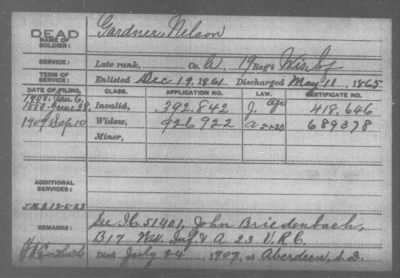 DEAD
NAME OF SOLDIER:
Gardner, Nelson
SERVICE:
Late rank, Co. A, 19 Reg't Wis. Inf
TERM OF SERVICE:
Enlisted Dec 19, 1861 Discharged May 11, 1865
DATE OF FILING. CLASS. APPLICATION NO. LAW. CERTIFICATE NO.
1908, Jan 6. Invalid, 392.842 J. age 418.646
1888 June 28.
1909 Sep 10 Widow, 926922 a 2+20 689378
Minor,
ADDITIONAL SERVICES:
REMARKS:
See Ib 51401, John Briedenbach,
B 17 Wis. Inf & A 23 V.R.C.
Died July 24, 1909, at Aberdeen, S.D.